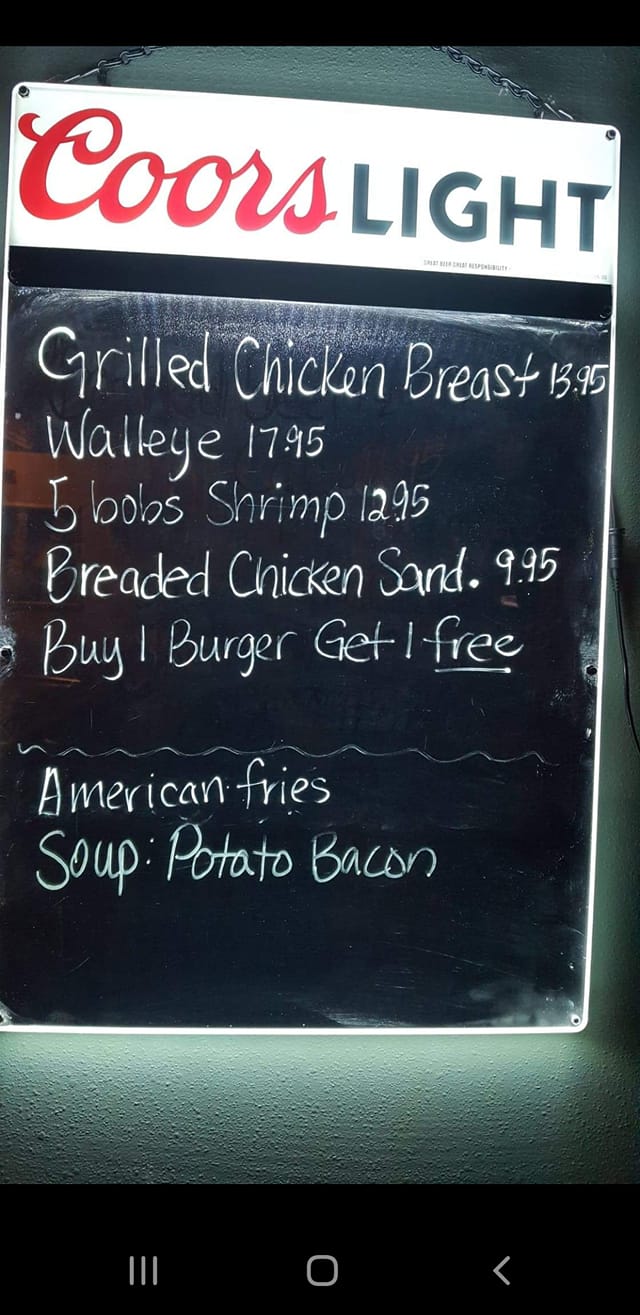 Coors LIGHT
GREAT BEER GREAT RESPONSIBILITY
Grilled Chicken Breast 13.95
Walleye 17.95
5 bobs Shrimp 12.95
Breaded Chicken Sand. 9.95
Buy 1 Burger Get 1 free
American fries
Soup: Potato Bacon